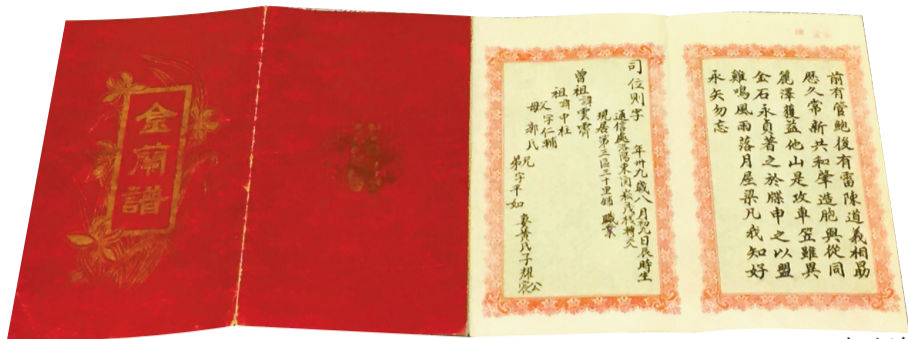 金蘭譜
前有管鮑後有雷陳道義相勗
歷久常新共和肇造胞與從同
麗澤獲益他山是攻車笠雖異
金石永貞著之於牒申之以盟
雞鳴風雨落月屋梁凡我知好
永矢勿忘
司位則字
年卅九歲八月初日辰時生
通信處洛陽東關
現居第三區三十里鋪 職業
曾祖諱雲霽
祖諱中柱
父字仁輔
母郭氏
兄
弟字平如
妻黃氏子